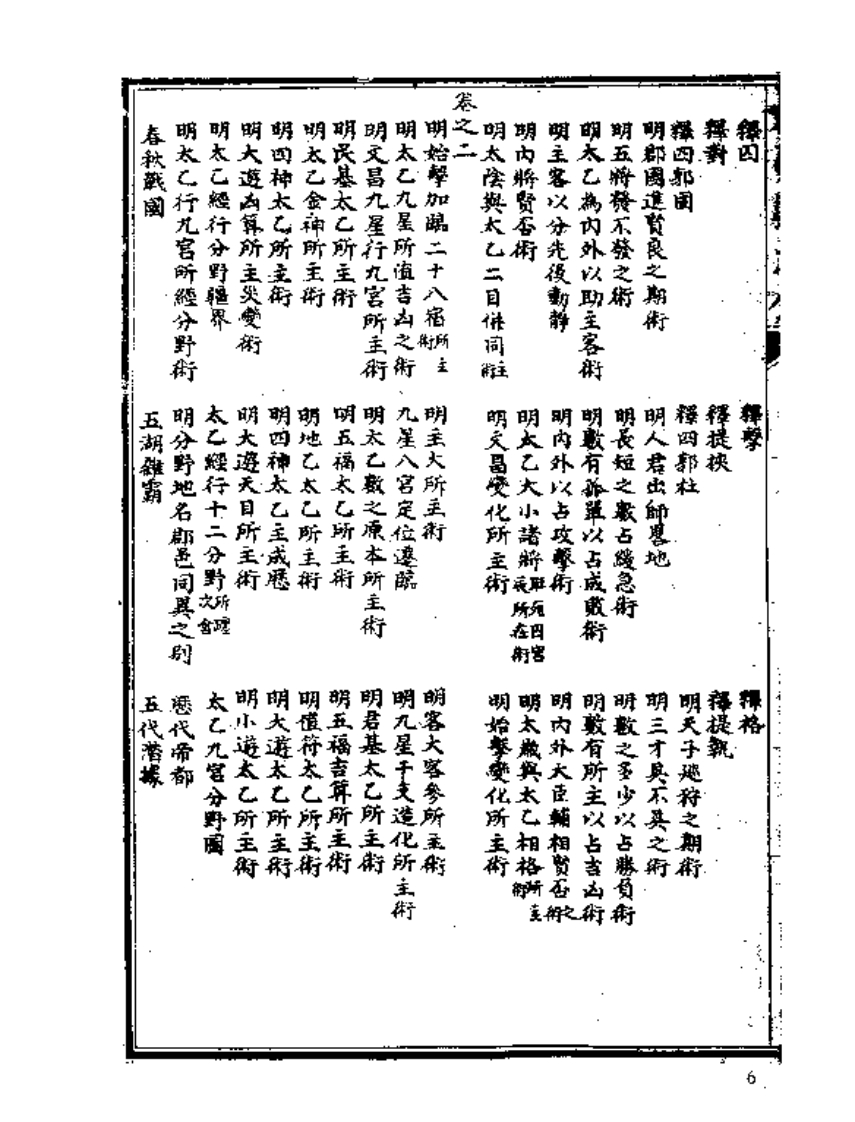 釋囚 釋擊 釋格
釋對 釋提挾 釋提執
釋四郭固 釋四郭杜
明郡國進賢良之期術 明人君出師畧地 明天子廵狩之期術
明五將發不發之術 明長短之數占緩急術 明三才具不具之術
明太乙為內外以助主客術 明數有孤單以占成敗術 明數之多少以占勝負術
明主客以分先後動靜 明內外以占攻擊術 明數有所主以占吉凶術
明內將賢否術 明太乙大小諸將 所在術 明內外大臣輔相賢否之術
明太陰與太乙二目併同 主術 明文昌變化所主術 明太歲與太乙相格所主術
明始擊變化所主術
卷之二
明始擊加臨二十八宿所主術 明主大所主術 明客大客參所主術
明太乙九星所值吉凶之術 九星八宮定位遠臨 明九星干支造化所主術
明文昌九星行九宮所主術 明太乙數之原本所主術 明君基太乙所主術
明民基太乙所主術 明五福太乙所主術 明五福吉算所主術
明太乙金神所主術 明地乙太乙所主術 明值符太乙所主術
明四神太乙所主術 明四神太乙主成歷 明大遊太乙所主術
明大遊凶算所主災變術 明大遊天目所主術 明小遊太乙所主術
明太乙經行分野疆界 太乙經行十二分野所躔次舍 太乙九宮分野圖
明太乙行九宮所經分野術 明分野地名郡邑同異之別 歷代帝都
春秋戰國 五湖雜霸 五代潛據
6